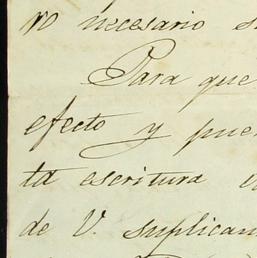 ro necesario s
Para que
efecto y pue
ta escritura
de V. suplican